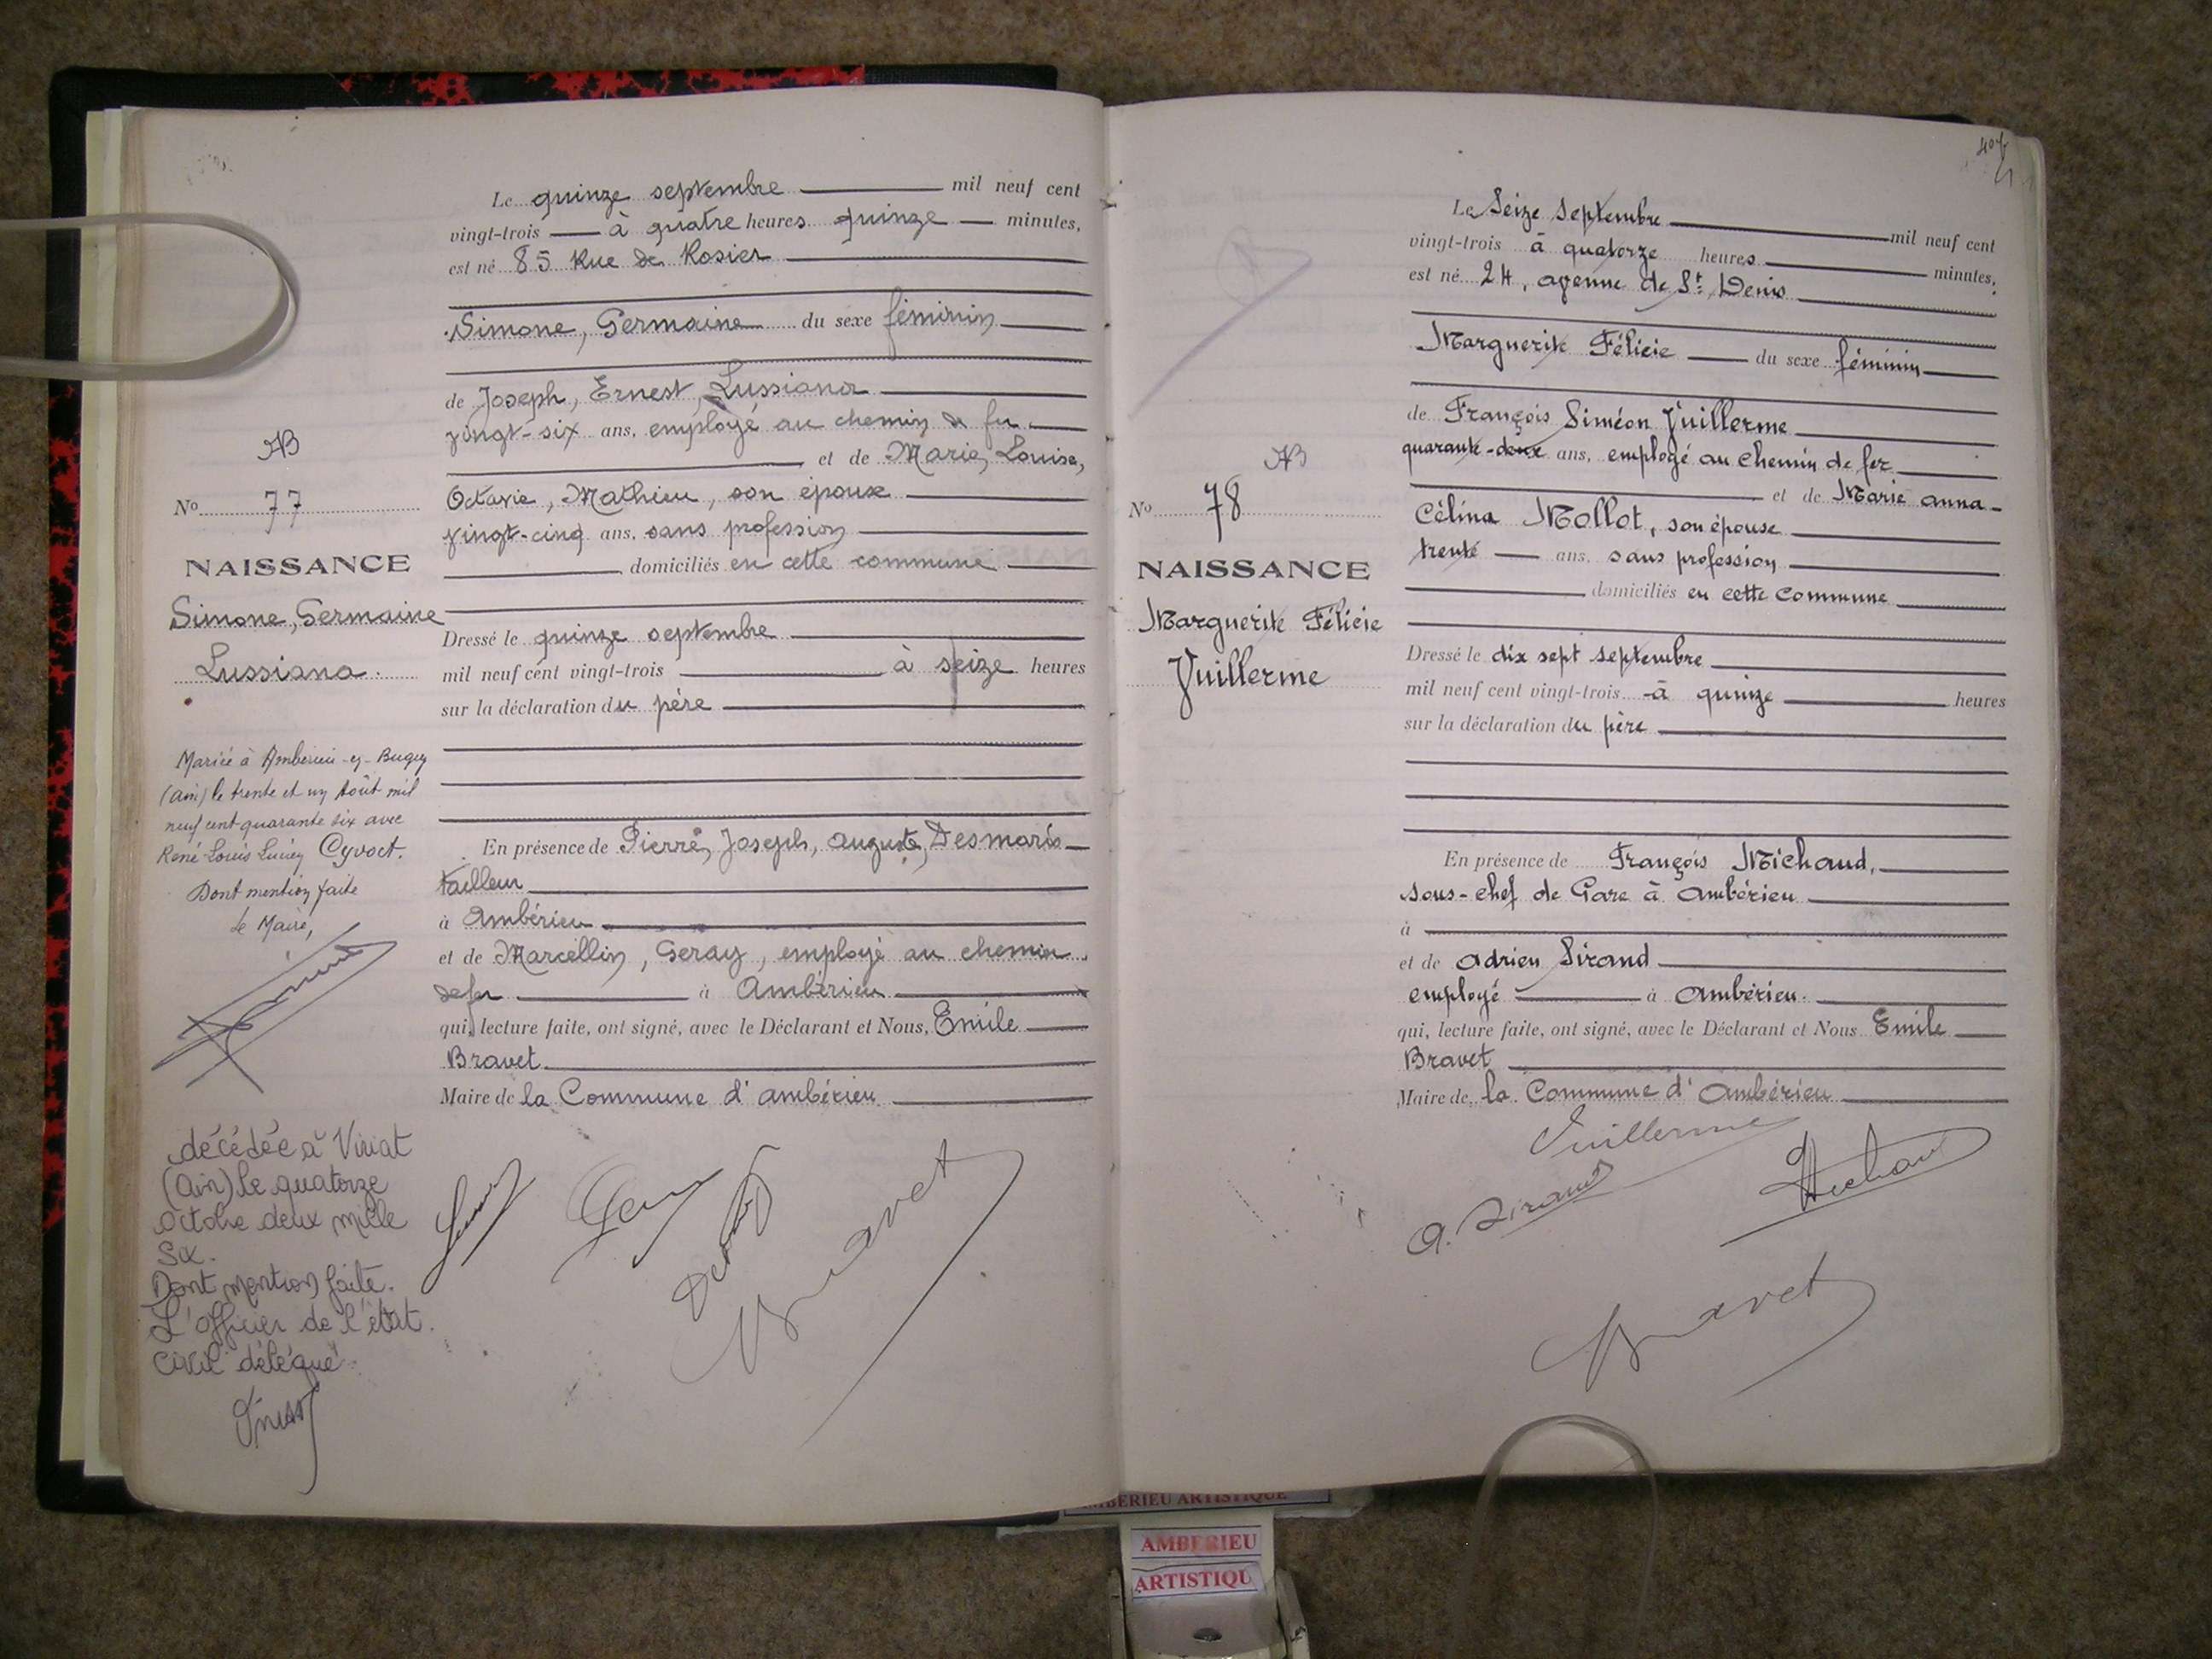 Le quinze septembre mil neuf cent
vingt-trois à quatre heures quinze minutes,
est né 85 Rue de Rosier
Simone, Germaine du sexe féminin
de Joseph, Ernest, Lussiana
vingt-six ans, employé au chemin de fer
et de Marie, Louise,
Octavie, Mathieu, son épouse
vingt-cinq ans, sans profession
domiciliés en cette commune
Dressé le quinze septembre
mil neuf cent vingt-trois à seize heures
sur la déclaration du père
En présence de Pierre, Joseph, Auguste, Desmaris
tailleur
à Ambérieu
et de Marcellin, Geray, employé au chemin
de fer à Ambérieu
qui, lecture faite, ont signé, avec le Déclarant et Nous, Emile
Bravet
Maire de la Commune d'Ambérieu
Bravet
AB
No 77
NAISSANCE
Simone, Germaine
Lussiana
Mariée à Ambérieu-en-Bugey
(Ain) le trente et un Août mil
neuf cent quarante six avec
René Louis Lucien Cyvoct.
Dont mention faite
Le Maire,
décédée à Viriat
(Ain) le quatorze
octobre deux mille
six.
Dont mention faite.
L'officier de l'état
civil délégué
AB
No 78
NAISSANCE
Marguerite Félicie
Vuillerme
Le Seize Septembre mil neuf cent
vingt-trois à quatorze heures minutes,
est né 24, avenue de St Denis
Marguerite Félicie du sexe féminin
de François Siméon Vuillerme
quarante-deux ans, employé au chemin de fer
et de Marie Anna-
Célina Mollot, son épouse
trente ans, sans profession
domiciliés en cette Commune
Dressé le dix sept septembre
mil neuf cent vingt-trois à quinze heures
sur la déclaration du père
En présence de François Michaud,
sous-chef de Gare à Ambérieu
à
et de Adrien Sirand
employé à Ambérieu.
qui, lecture faite, ont signé, avec le Déclarant et Nous Emile
Bravet
Maire de la Commune d'Ambérieu
Vuillerme
A. Sirand
Michaud
Bravet
AMBERIEU ARTISTIQUE
AMBERIEU
ARTISTIQU